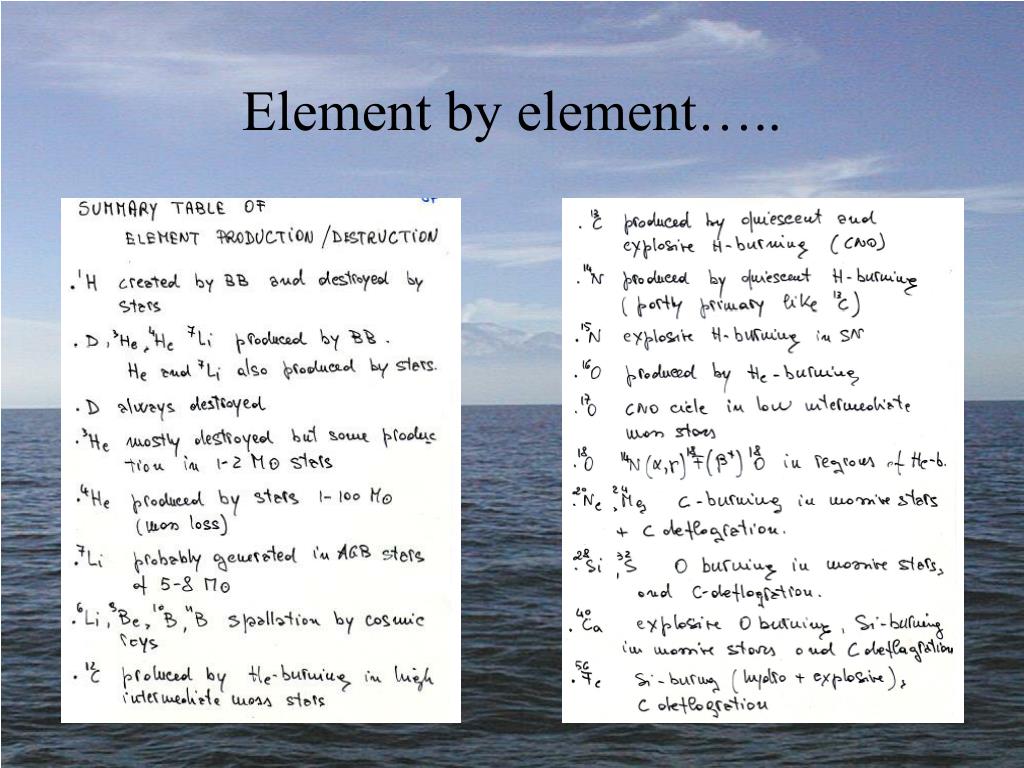 Element by element…..
SUMMARY TABLE OF
ELEMENT PRODUCTION / DESTRUCTION
. ¹H created by BB and destroyed by
stars
. D, ³He, ⁴He ⁷Li produced by BB.
He and ⁷Li also produced by stars.
. D always destroyed
. ³He mostly destroyed but some produc
tion in 1-2 M⊙ stars
. ⁴He produced by stars 1-100 M⊙
(mass loss)
. ⁷Li probably generated in AGB stars
of 5-8 M⊙
. ⁶Li, ⁹Be, ¹⁰B, ¹¹B spallation by cosmic
rays
. ¹²C produced by He-burning in high
intermediate mass stars
. ¹³C produced by quiescent and
explosive H-burning (CNO)
. ¹⁴N produced by quiescent H-burning
(partly primary like ¹³C)
. ¹⁵N explosive H-burning in SN
. ¹⁶O produced by He-burning
. ¹⁷O CNO cicle in low intermediate
mass stars
. ¹⁸O ¹⁴N(α,γ)¹⁸F(β⁺)¹⁸O in regions of He-b.
. ²⁰Ne, ²⁴Mg C-burning in massive stars
+ C deflagration.
. ²⁸Si, ³²S O burning in massive stars,
and C-deflagration.
. ⁴⁰Ca explosive O burning, Si-burning
in massive stars and C deflagration
. ⁵⁶Fe Si-burning (hydro + explosive),
C deflagration